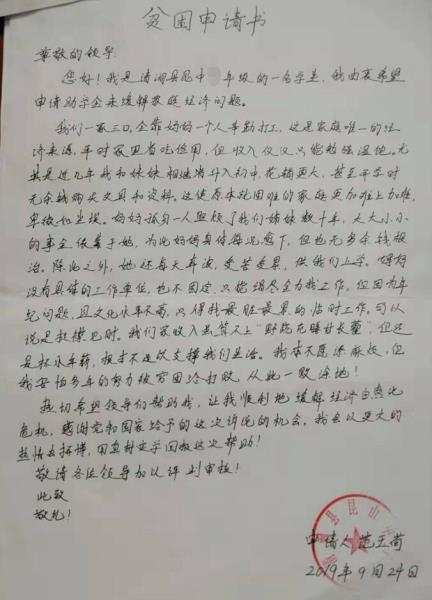 贫困申请书
尊敬的领导:
您好!我是清涧县昆中 年级的一名学生,我由衷希望
申请助学金来缓解家庭经济问题。
我们一家三口,全靠妈妈一个人辛勤打工,这是家庭唯一的经
济来源,平时家里省吃俭用,但收入仅仅只能勉强温饱。尤
其是近几年我和妹妹相继步入初中,花销更大,甚至平时
无余钱购买文具和资料。这使原本就困难的家庭更加难上加难,
卑微似尘埃。妈妈独自一人照顾了我们姊妹数十年,大大小小
的事全依靠于她,为此妈妈身体每况愈下,但也无多余钱根
治。除此之外,她还每天奔波,受苦受累,供我们上学。妈妈
没有具体的工作单位,也不固定,只能竭尽全力找工作,但因为年
纪问题,且文化水平不高,只得找最脏最累的临时工作。可以
说是拮据见时。我们家收入虽算不上“野花充膳甘长藿”,但已
是杯水车薪,根本不足以支撑我们生活。我本不愿添麻烦,但
我害怕多年的努力被穷困给打败,从此一败涂地!
热切希望领导们帮助我,让我顺利地缓解经济自然化
危机,感谢党和国家给予的这次倾诉的机会,我会以更大的
热情去拼搏,用真材实学回报这次帮助!
敬请各位领导加以评判审核!
此致
敬礼!
县昆山
申请人 范玉荷
2019年9月24日